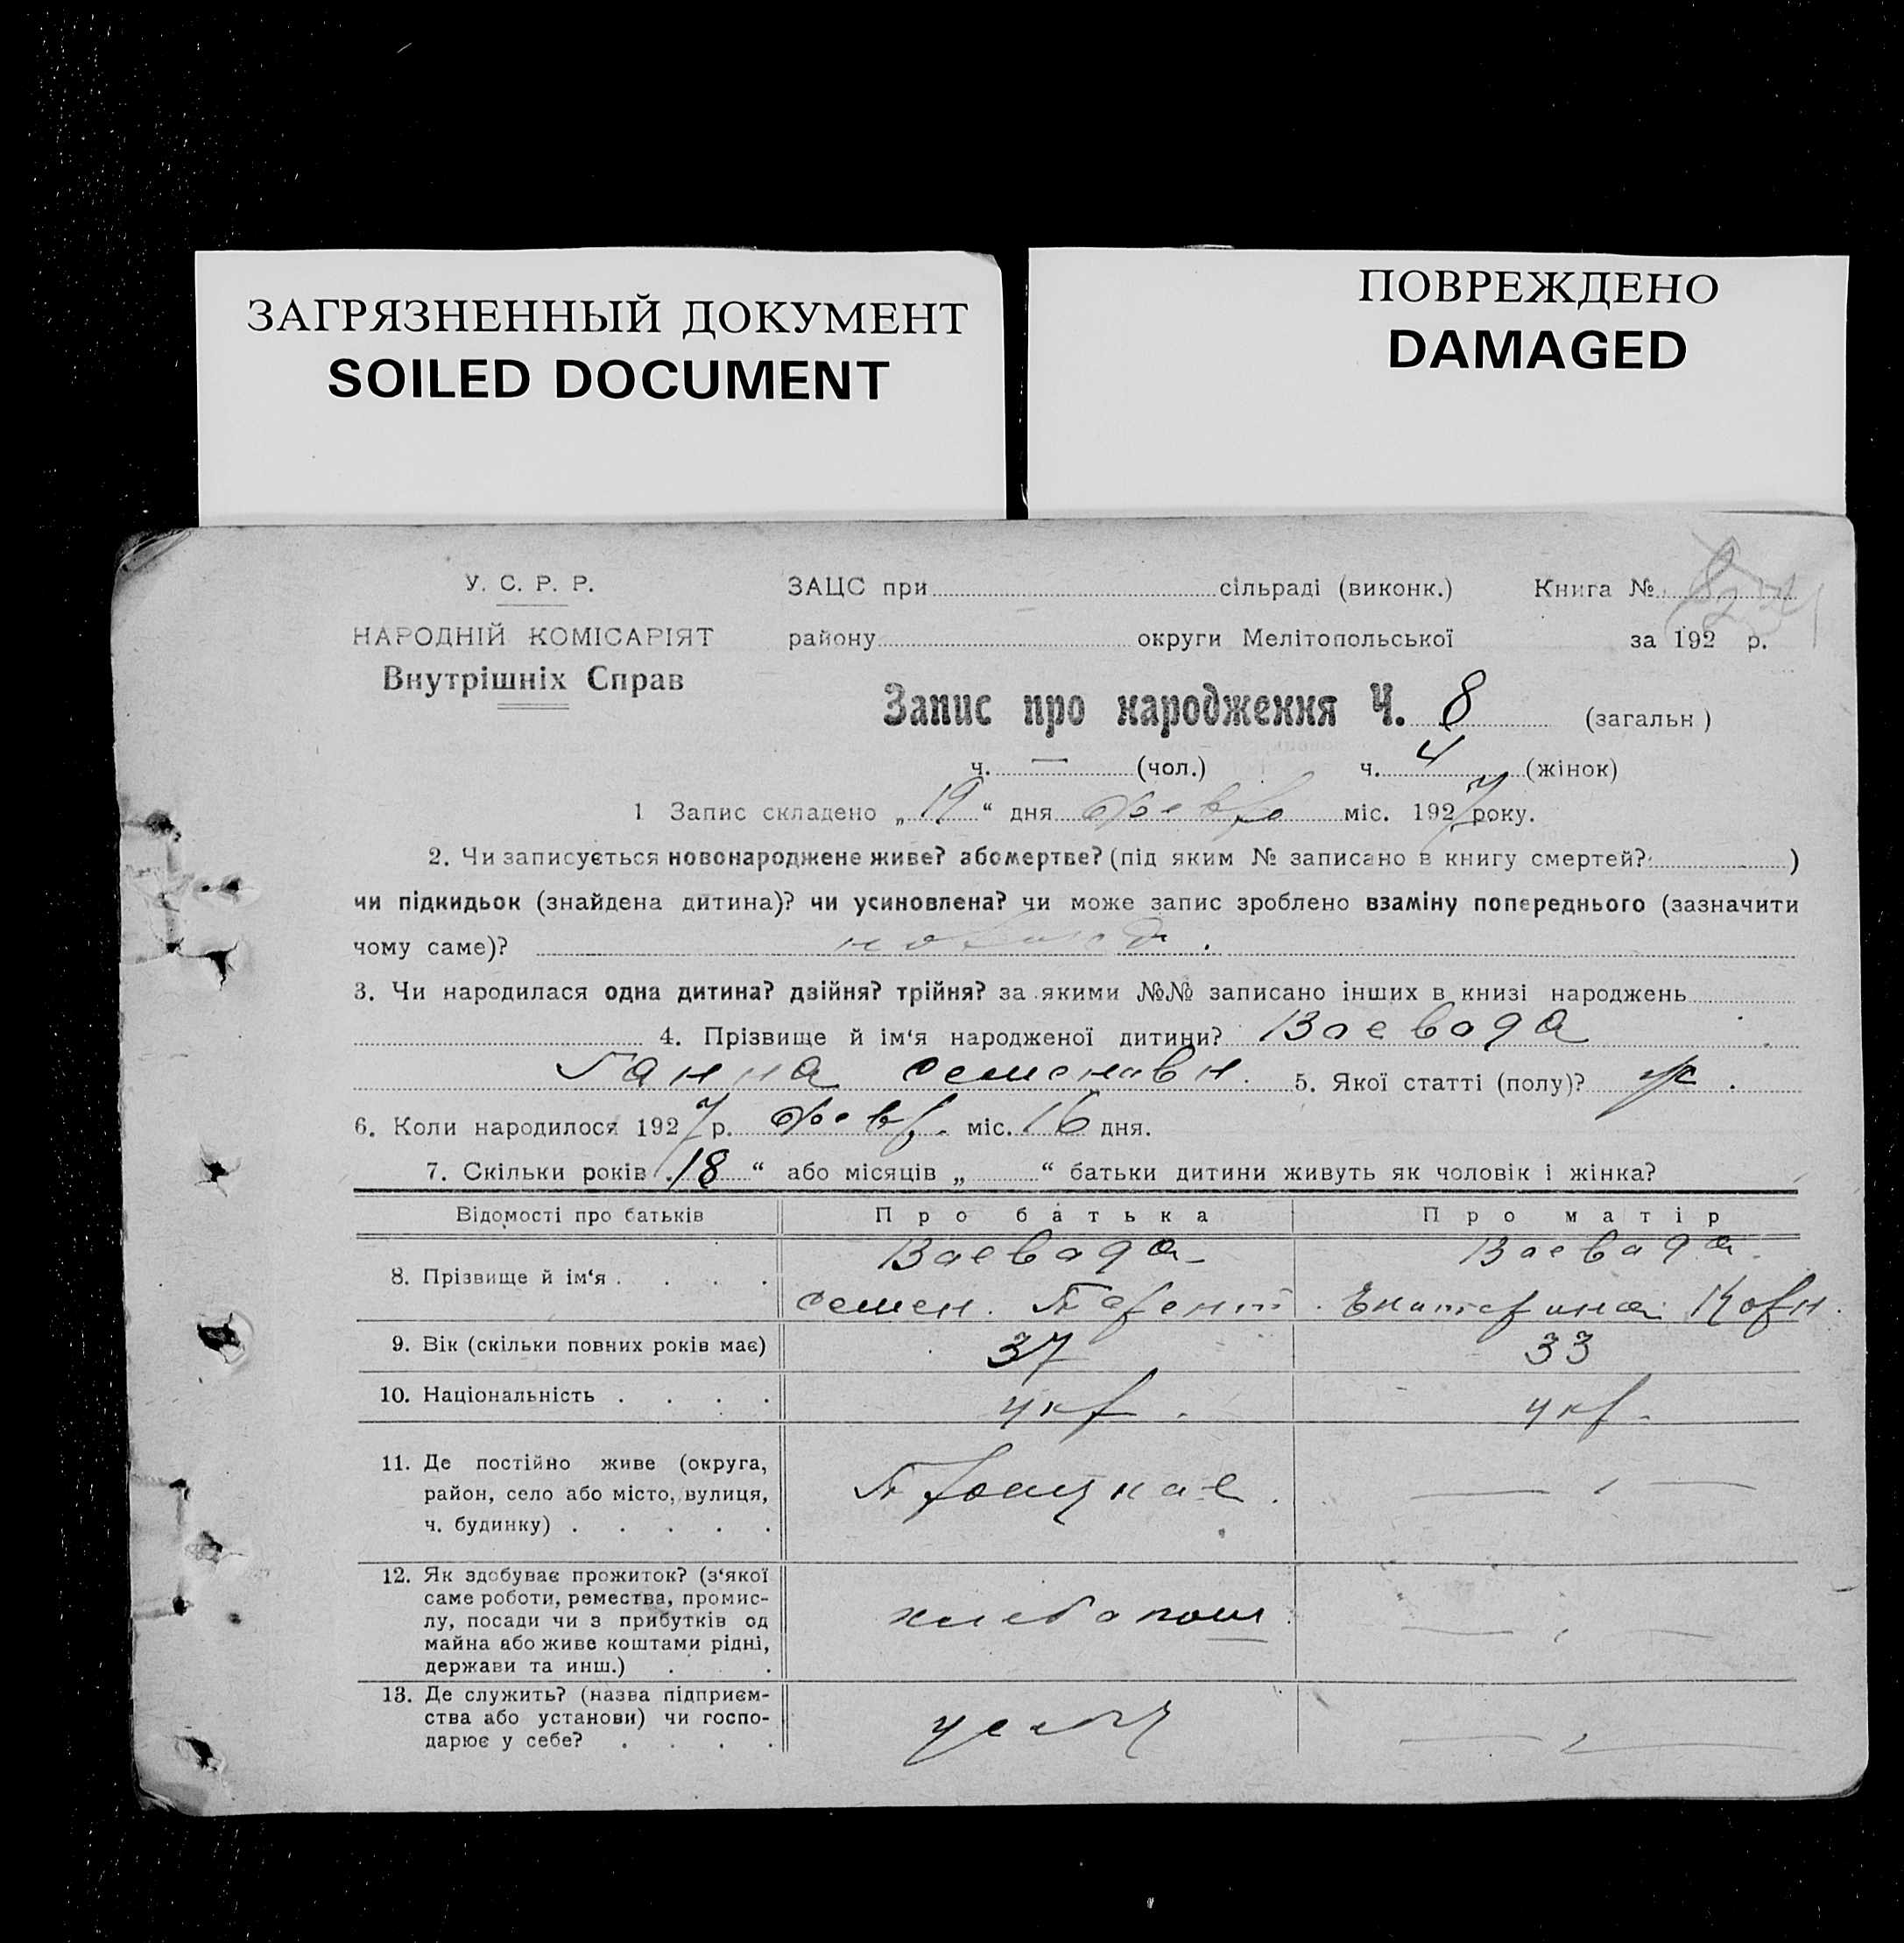 ЗАГРЯЗНЕННЫЙ ДОКУМЕНТ
SOILED DOCUMENT
ПОВРЕЖДЕНО
DAMAGED
У. С. Р. Р.
НАРОДНІЙ КОМІСАРІЯТ
Внутрішніх Справ
ЗАЦС при сільраді (виконк.) Книга №
району округи Мелітопольської за 192 р.
Запис про народження Ч. 8 (загальн)
ч. — (чол.) ч. 4 (жінок)
1 Запис складено „19“ дня февр міс. 1927 року.
2. Чи записується новонароджене живе? або мертве? (під яким № записано в книгу смертей? )
чи підкидьок (знайдена дитина)? чи усиновлена? чи може запис зроблено взаміну попереднього (зазначити
чому саме)?
3. Чи народилася одна дитина? двійня? трійня? за якими №№ записано інших в книзі народжень
4. Прізвище й ім‘я народженої дитини?Ваевода
Ганна семеновн. 5. Якої статті (полу)? ж.
6. Коли народилося 1927 р. февр. міс. 16 дня.
7. Скільки років „18“ або місяців „ “ батьки дитини живуть як чоловік і жінка?
Відомості про батьків Про батька Про матір
8. Прізвище й ім‘я . . . . Ваевода Ваевода
семен. Екатерина Корн.
9. Вік (скільки повних років має) 37 33
10. Національність . . . . укр. укр.
11. Де постійно живе (округа,
район, село або місто, вулиця,
ч. будинку) . . . . .
Троицкае.
— „ —
12. Як здобуває прожиток? (з‘якої
саме роботи, ремества, промис-
лу, посади чи з прибутків од
майна або живе коштами рідні,
держави та инш.) . .
хлебопаш
— „ —
13. Де служить? (назва підприєм-
ства або установи) чи госпо-
дарює у себе? . . . .
— „ —